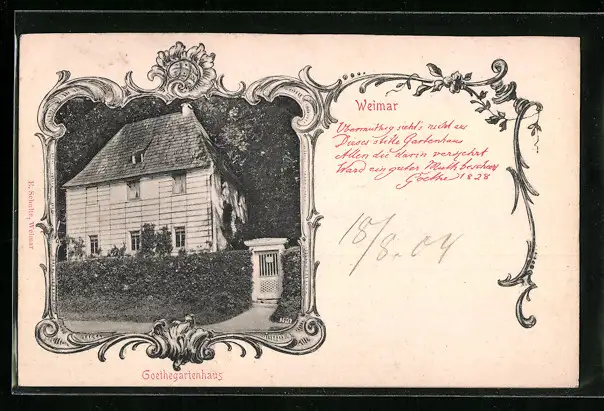 Weimar
Übermüthig sieht's nicht aus
Dieses stille Gartenhaus
Allen die darin verkehrt
Ward ein guter Muth beschert
Goethe 1828
18/8.04
E. Schulte, Weimar
Goethegartenhaus